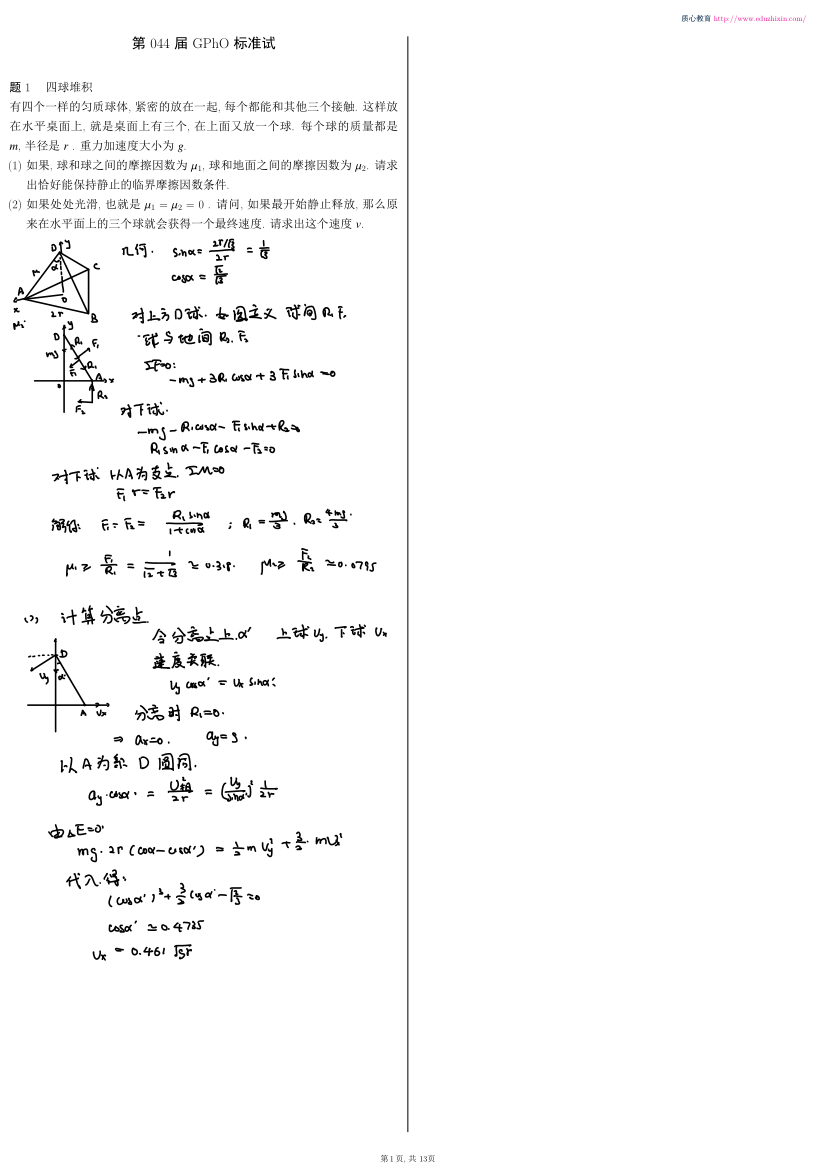 质心教育 http://www.eduzhixin.com/
第 044 届 GPhO 标准试
题 1 四球堆积
有四个一样的匀质球体, 紧密的放在一起, 每个都能和其他三个接触. 这样放
在水平桌面上, 就是桌面上有三个, 在上面又放一个球. 每个球的质量都是
m, 半径是 r . 重力加速度大小为 g.
(1) 如果, 球和球之间的摩擦因数为 μ₁, 球和地面之间的摩擦因数为 μ₂. 请求
出恰好能保持静止的临界摩擦因数条件.
(2) 如果处处光滑, 也就是 μ₁ = μ₂ = 0 . 请问, 如果最开始静止释放, 那么原
来在水平面上的三个球就会获得一个最终速度. 请求出这个速度 v.
几何. sinα = (2r/√3)/(2r) = 1/√3
cosα = √2/√3
对上方D球. 如图定义 球间 R₁ F₁
球与地间 R₂. F₂
ΣF=0:
-mg + 3R₁ cosα + 3 F₁ sinα = 0
对下球.
-mg - R₁cosα - F₁ sinα + R₂ = 0
R₁ sinα - F₁ cosα - F₂ = 0
对下球 以A为支点. ΣM=0
F₁ r = F₂ r
解得: F₁ = F₂ = R₁ sinα/(1+cosα) ; R₁ = mg/3 . R₂ = 4mg/3 .
μ₁ ≥ F₁/R₁ = 1/(√2+√3) ≃ 0.318. μ₂ ≥ F₂/R₂ ≃ 0.0795
计算分离点
令分离点上.α′ 上球 Uy. 下球 Ux
速度关联.
Uy cosα′ = Ux sinα′
分离时 R₁=0.
⇒ ax=0. ay=g .
以A为系 D 圆周.
ay·cosα′ = U相²/2r = (Uy/sinα′)² 1/2r
由ΔE=0.
mg · 2r (cosα - cosα′) = 1/2 m Uy² + 3/2 · mUx²
代入.得:
(cosα′)³ + 3/2 cosα′ - √(2/3) = 0
cosα′ ≃ 0.4725
Ux = 0.461 √gr
第 1 页, 共 13页